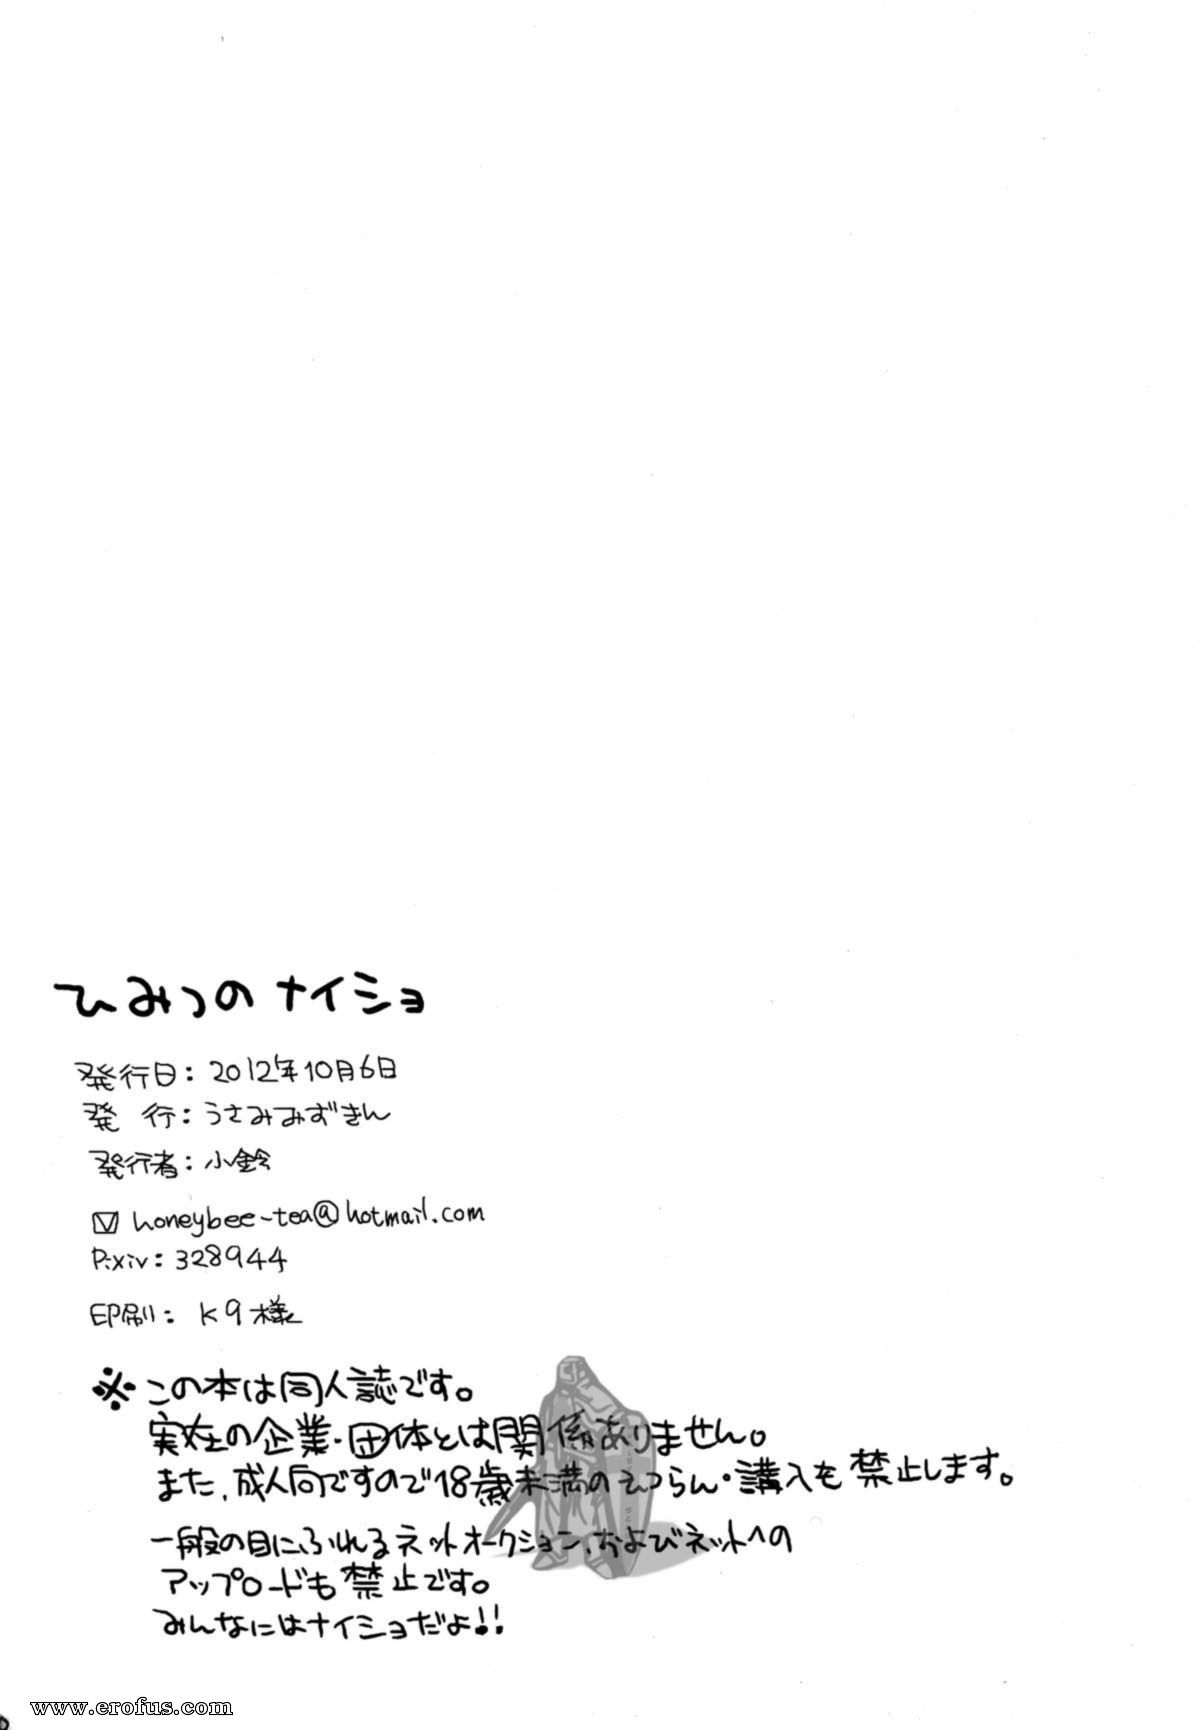 ひみつのナイショ
発行日：2012年10月6日
発　行：うさみみずきん
発行者：小鈴
honeybee-tea@hotmail.com
Pixiv：328944
印刷：K9様
※この本は同人誌です。
実在の企業・団体とは関係ありません。
また、成人向ですので18歳未満のえつらん・講入も禁止します。
一般の目にふれるネットオークション、およびネットへの
アップロードも禁止です。
みんなにはナイショだよ!!
www.erofus.com